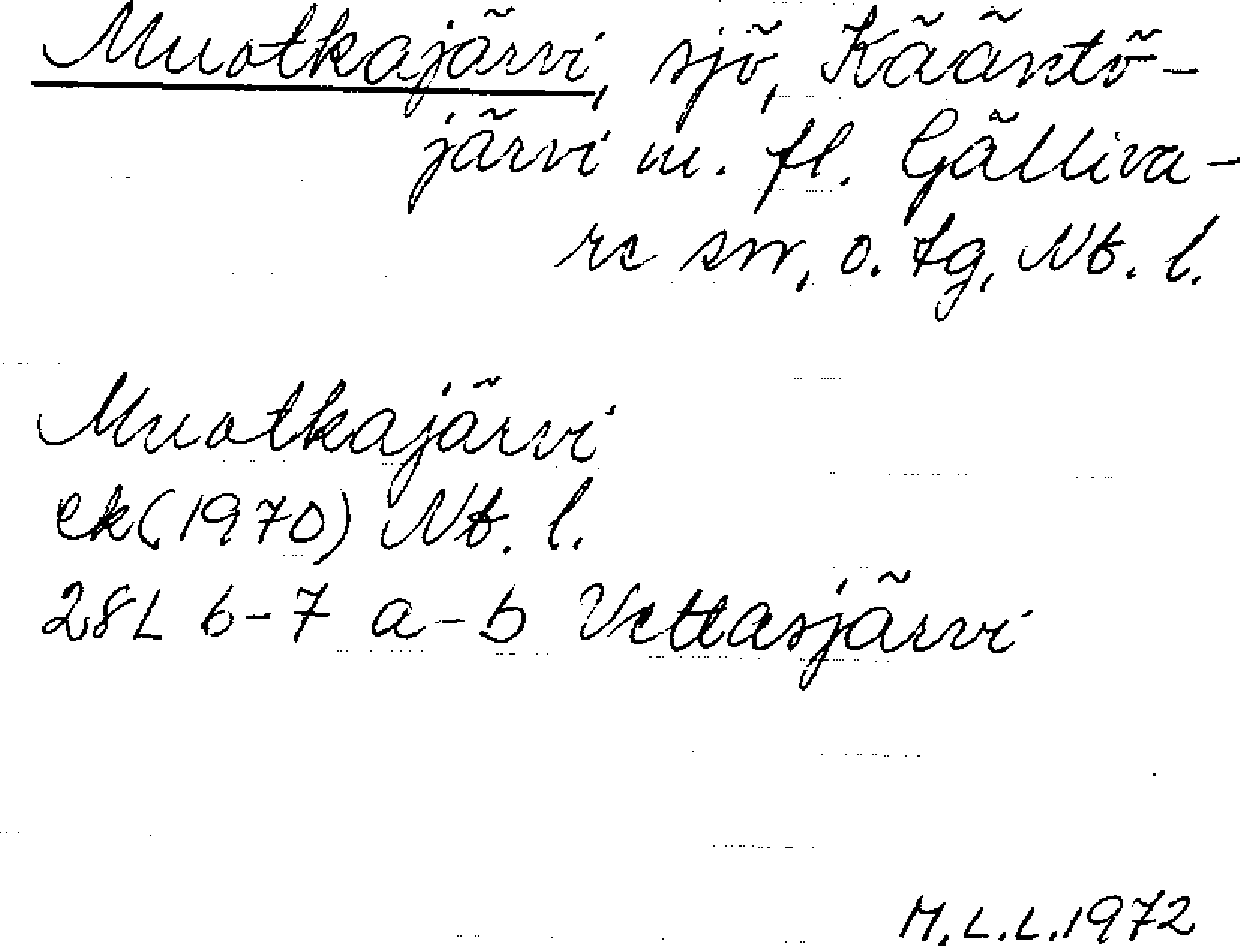 Muotkajärvi, sjö, Kääntö-
järvi m. fl. Gälliva-
re sn, o. tg, Nb. l.
Muotkajärvi
ek(1970) Nb. l.
28L 6-7 a-b Vettasjärvi
M.L.L.1972